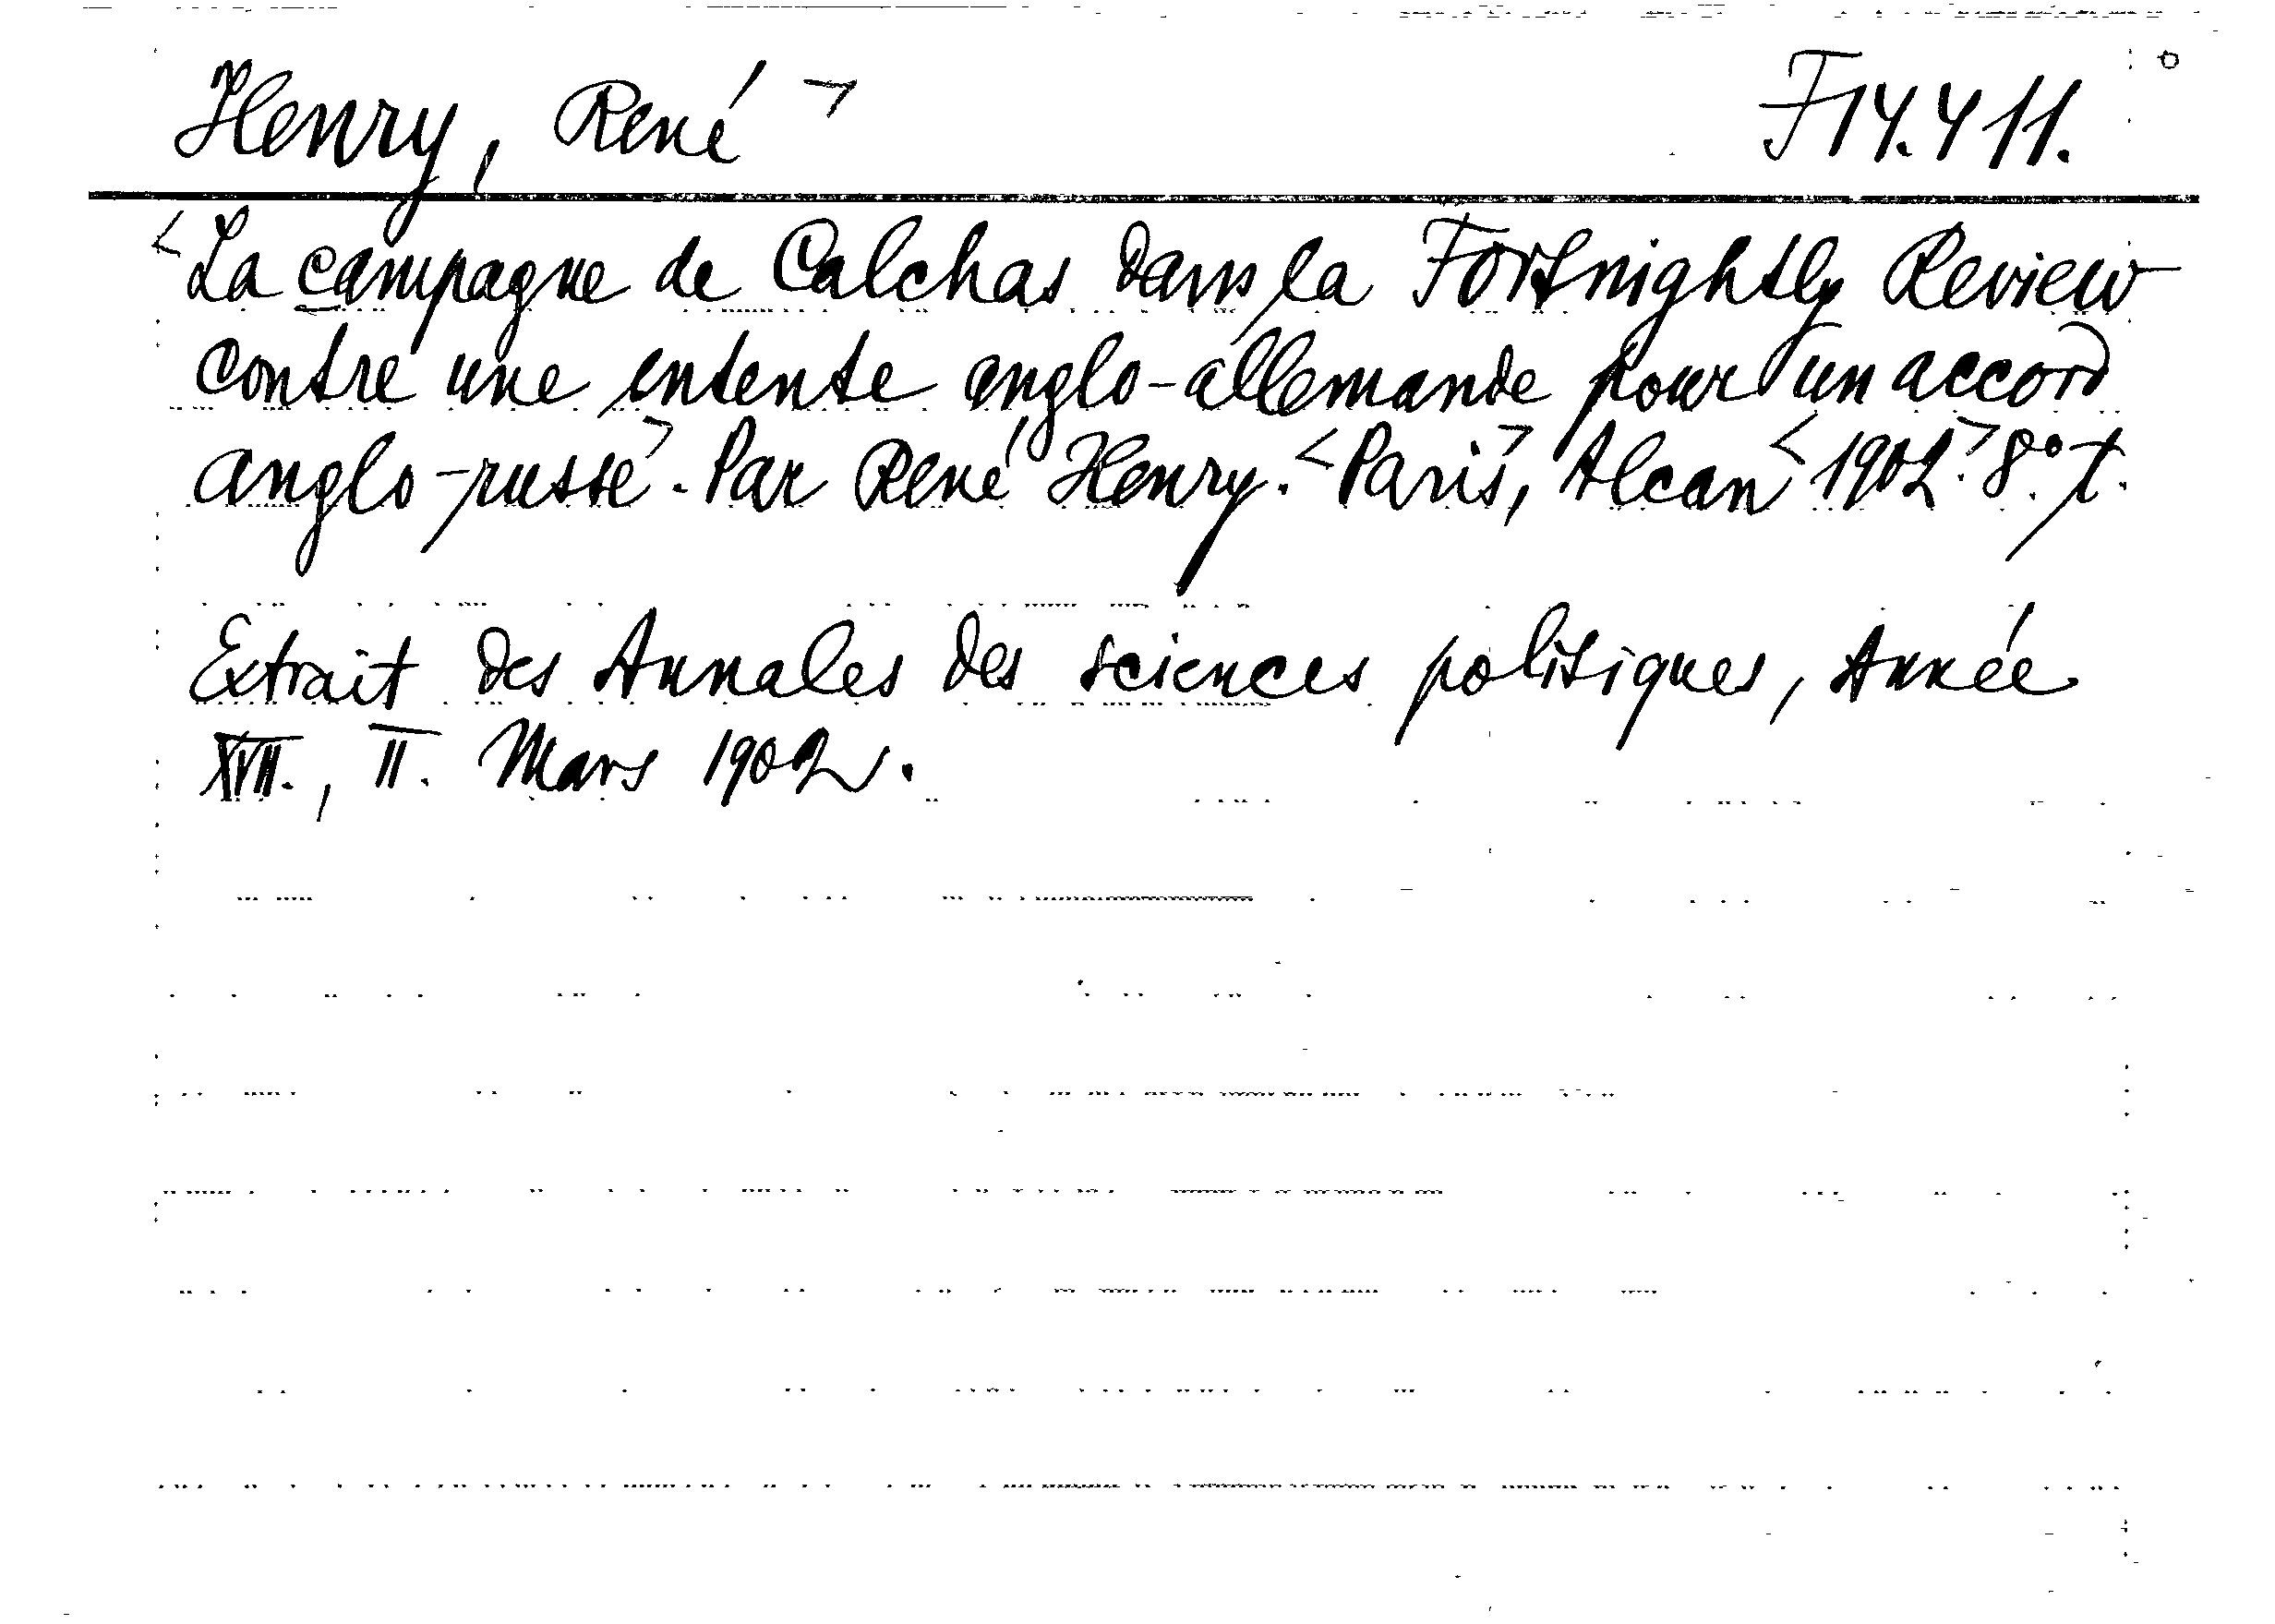 Henry, René > F 14.411.
<La campagne de Calchas dans la Fortnightly Review
contre une entente anglo-allemande pour un accord
anglo-russe>. Par René Henry. <Paris>, Alcan <1902.> 8° t.
Extrait des Annales des sciences politiques, Année
XVII., II. Mars 1902.